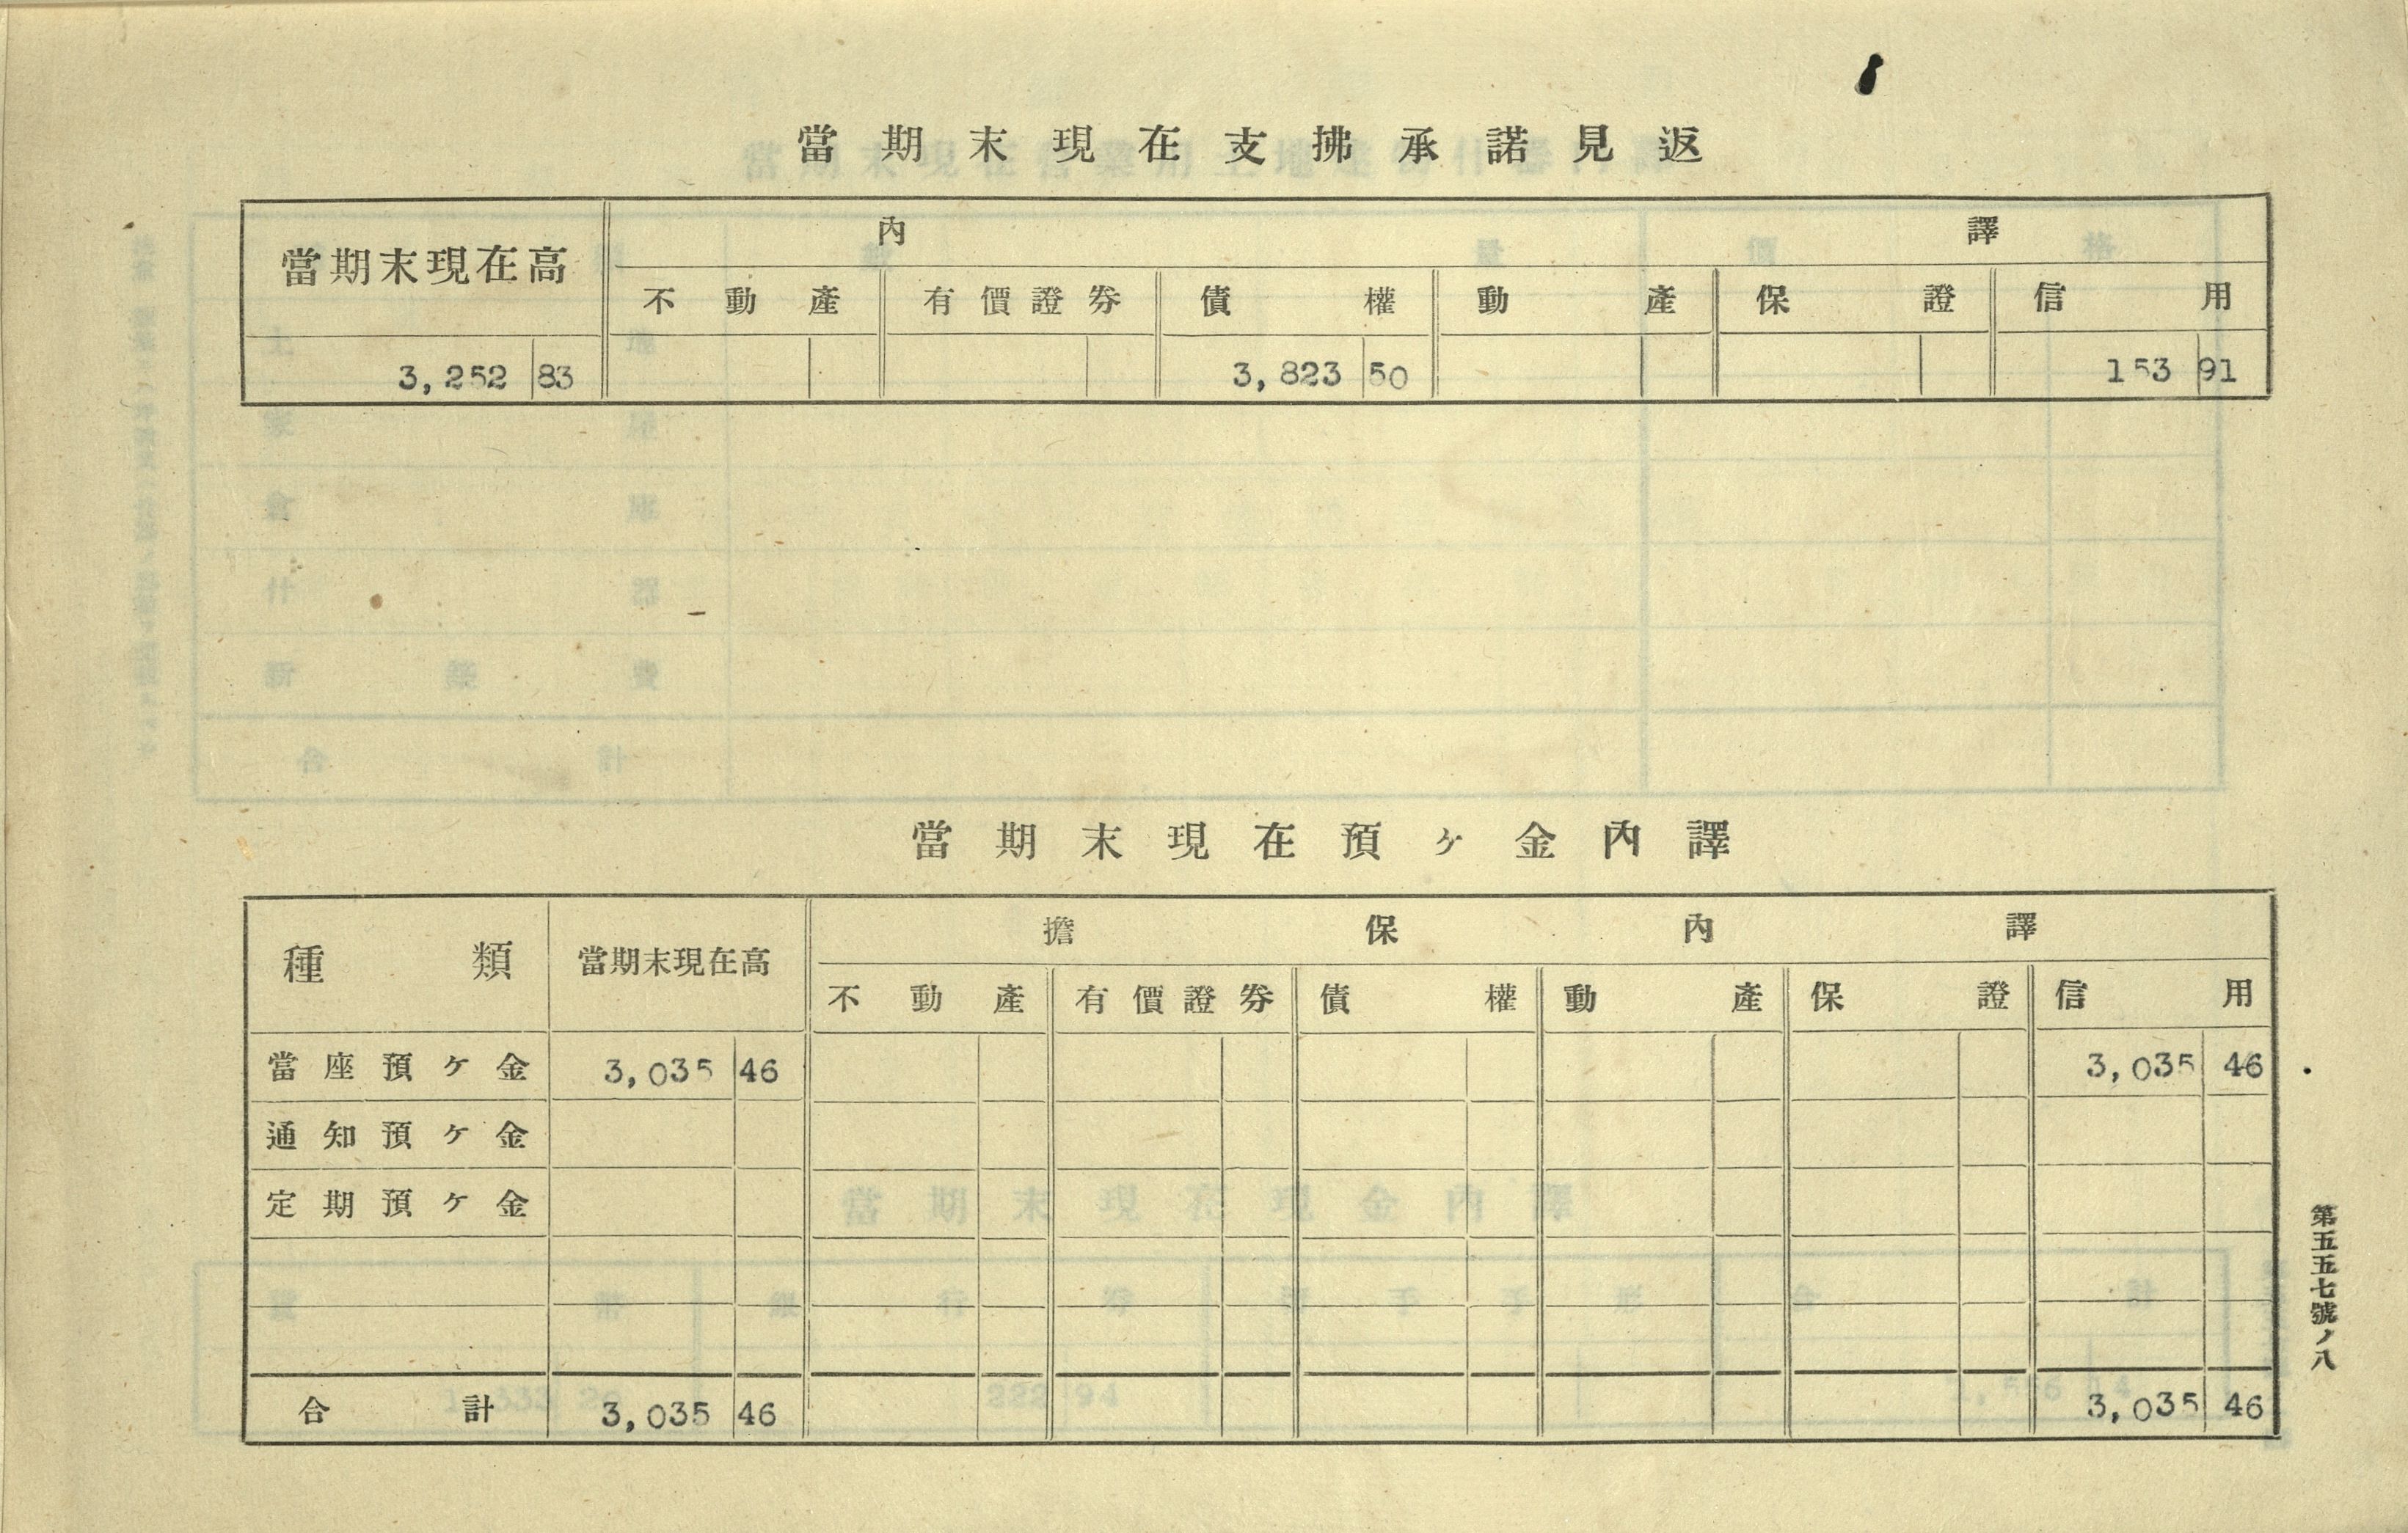 當期末現在支拂承諾見返
當期末現在高 內譯
不動產 有價證券 債權 動產 保證 信用
3,252 83 3,823 50 153 91
當期末現在預ヶ金內譯
種類 當期末現在高 擔保內譯
不動產 有價證券 債權 動產 保證 信用
當座預ヶ金 3,035 46 3,035 46
通知預ヶ金
定期預ヶ金
合計 3,035 46 3,035 46
第五五七號ノ八